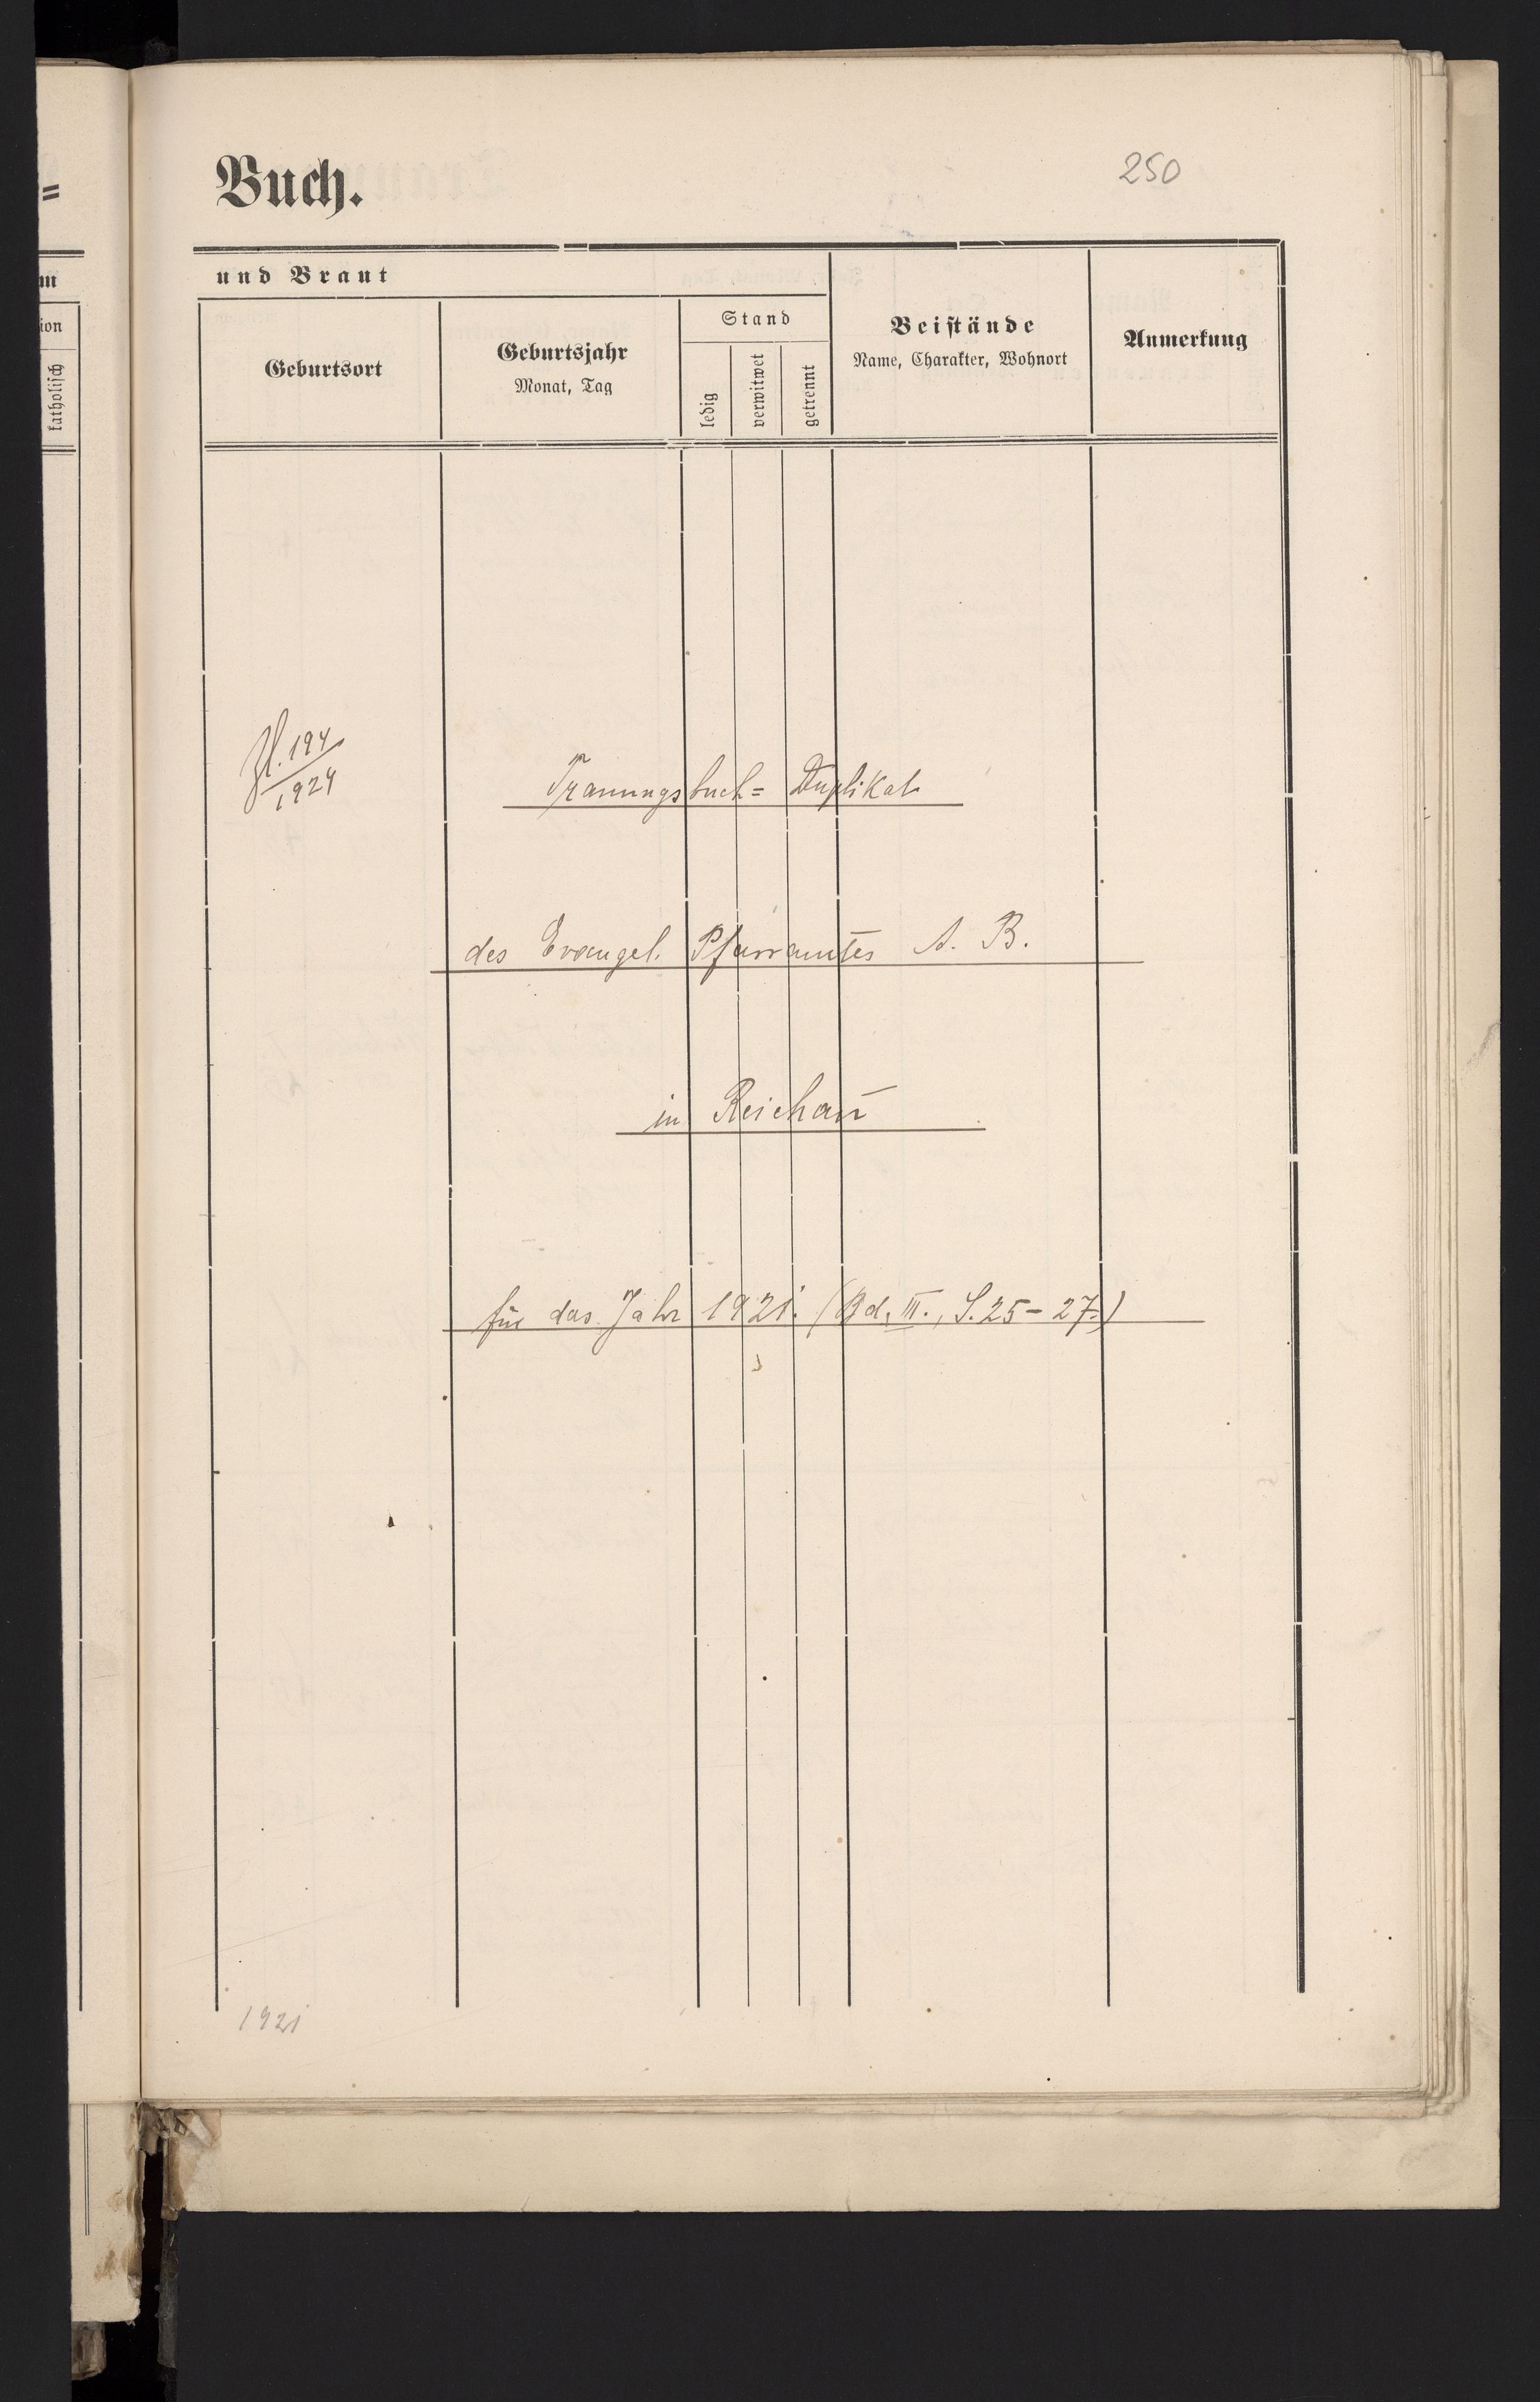 =
m
ion
katholisch
Buch.
250
und Braut
Geburtsort
Geburtsjahr
Monat, Tag
Stand
ledig
verwitwet
getrennt
Beistände
Name, Charakter, Wohnort
Anmerkung
Zl. 194
1924
Trauungsbuch= Duplikat
des Evangel. Pfarramtes A. B.
in Reichau
für das Jahr 1921. (Bd. III., S. 25 - 27.)
1921